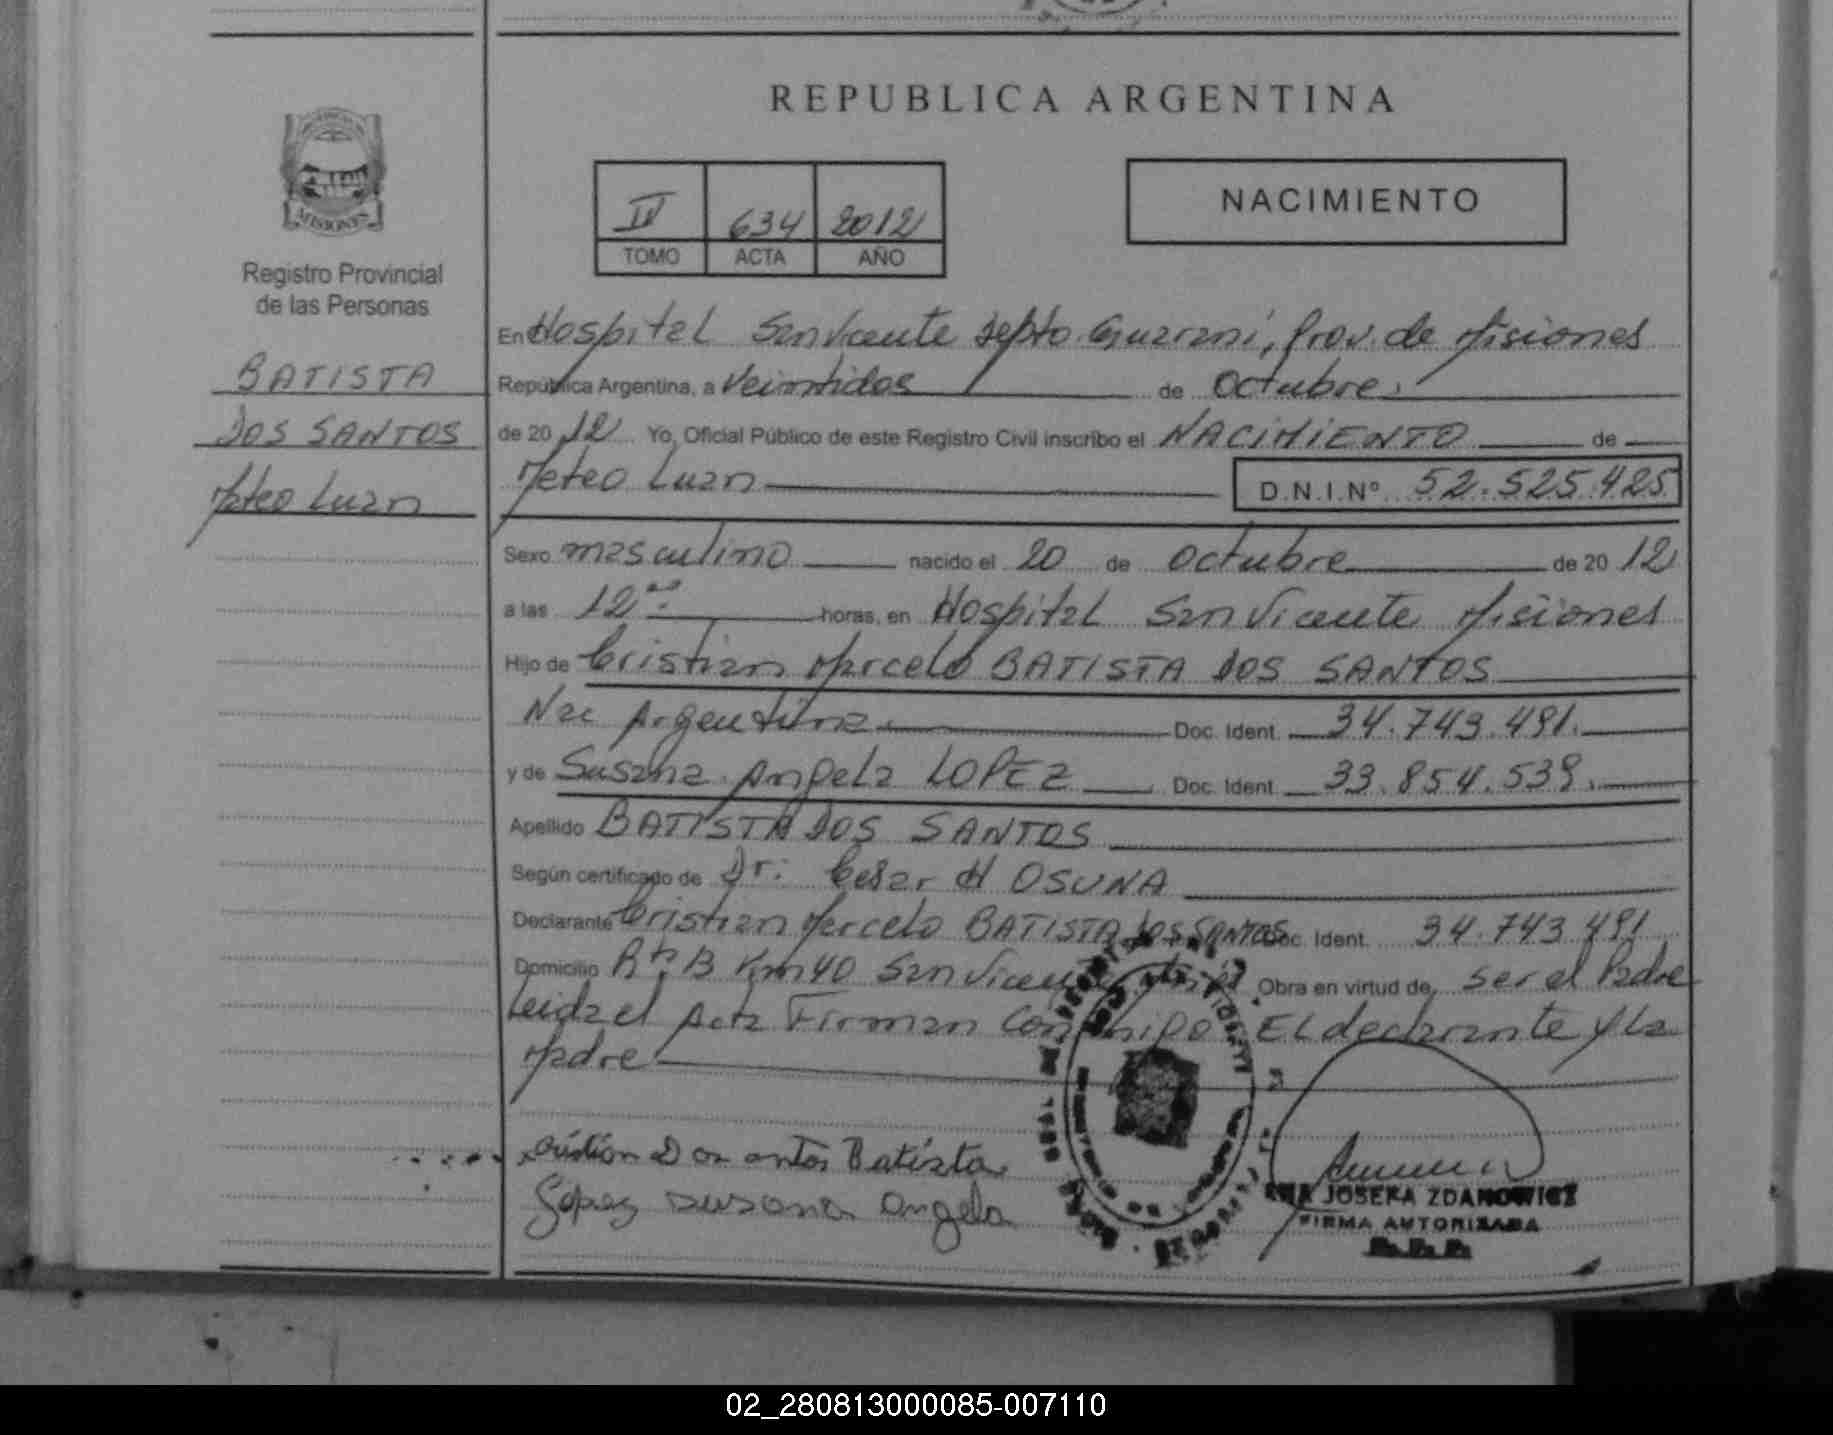 REPUBLICA ARGENTINA
MISIONES
Registro Provincial
de las Personas
BATISTA
DOS SANTOS
Mateo Luan
IV 634 2012
TOMO ACTA AÑO
NACIMIENTO
En Hospital San Vicente Depto. Guarani, Prov. de Misiones
República Argentina, a Veintidos de Octubre.
de 20 12 Yo, Oficial Público de este Registro Civil inscribo el NACIMIENTO de
Mateo Luan D.N.I.Nº 52.525.425
Sexo masculino nacido el 20 de Octubre de 20 12
a las 12 horas, en Hospital San Vicente Misiones
Hijo de Cristian Marcelo BATISTA DOS SANTOS
Nac Argentina. Doc. Ident. 34.743.491.
y de Susana Angela LOPEZ Doc. Ident. 33.854.539.
Apellido BATISTA DOS SANTOS
Según certificado de Dr. Cesar H OSUNA
Declarante Cristian Marcelo BATISTA DOS SANTOS Doc. Ident. 34.743.491
Domicilio Rta 13 Km 40 San Vicente Obra en virtud de ser el Padre
Leida el Acta Firman Conmigo El declarante y la
Madre
Dos antos Batista
Lopez susana angela
JOSEFA ZDANOWICZ
FIRMA AUTORIZADA
R.P.P.
02_280813000085-007110